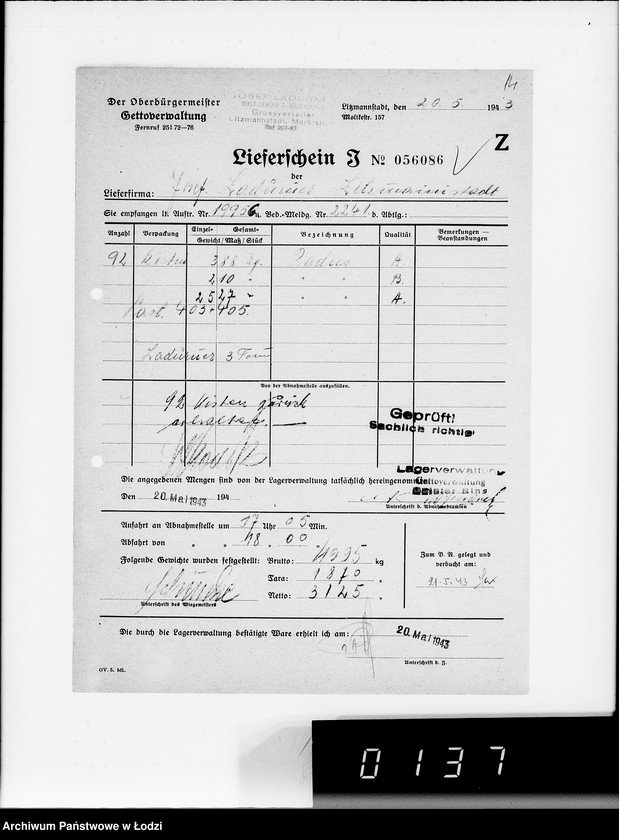 14
Der Oberbürgermeister
Gettoverwaltung
Fernruf 251 72—76
Grossverteiler
Litzmannstadt,
Litzmannstadt, den 20. 5. 1943
Moltkestr. 157
Z
Lieferschein J № 056086
der
Lieferfirma: Josef Ladurner Litzmannstadt
Sie empfangen lt. Auftr. Nr. 19956 u. Bed.-Meldg. Nr. 2241 d. Abtlg.:
Anzahl Verpackung Einzel- Gesamt- Gewicht / Maß / Stück Bezeichnung Qualität Bemerkungen — Beanstandungen
92 Kisten 388 kg. A.
210 " " " B.
2527 " " " A.
403 + 405.
Ladurner 3
Von der Abnahmestelle auszufüllen.
92 Kisten zurück
erhalten
Geprüft!
Sachlich richtig
Lagerverwaltung
Gettoverwaltung
Die angegebenen Mengen sind von der Lagerverwaltung tatsächlich hereingenommen
Den 20. Mai 1943 194
Unterschrift d. Abnahmebeamten
Anfahrt an Abnahmestelle um 17 Uhr 05 Min.
Abfahrt von " " 18. 00 "
Folgende Gewichte wurden festgestellt: Brutto: 4995 kg
Tara: 1870 "
Netto: 3125 "
Unterschrift des Wiegemeisters
Zum V. A. gelegt und
verbucht am:
21. 5. 43
Die durch die Lagerverwaltung bestätigte Ware erhielt ich am: 20. Mai 1943
Unterschrift d. J.
GV. 5. ML.
0137
Archiwum Państwowe w Łodzi